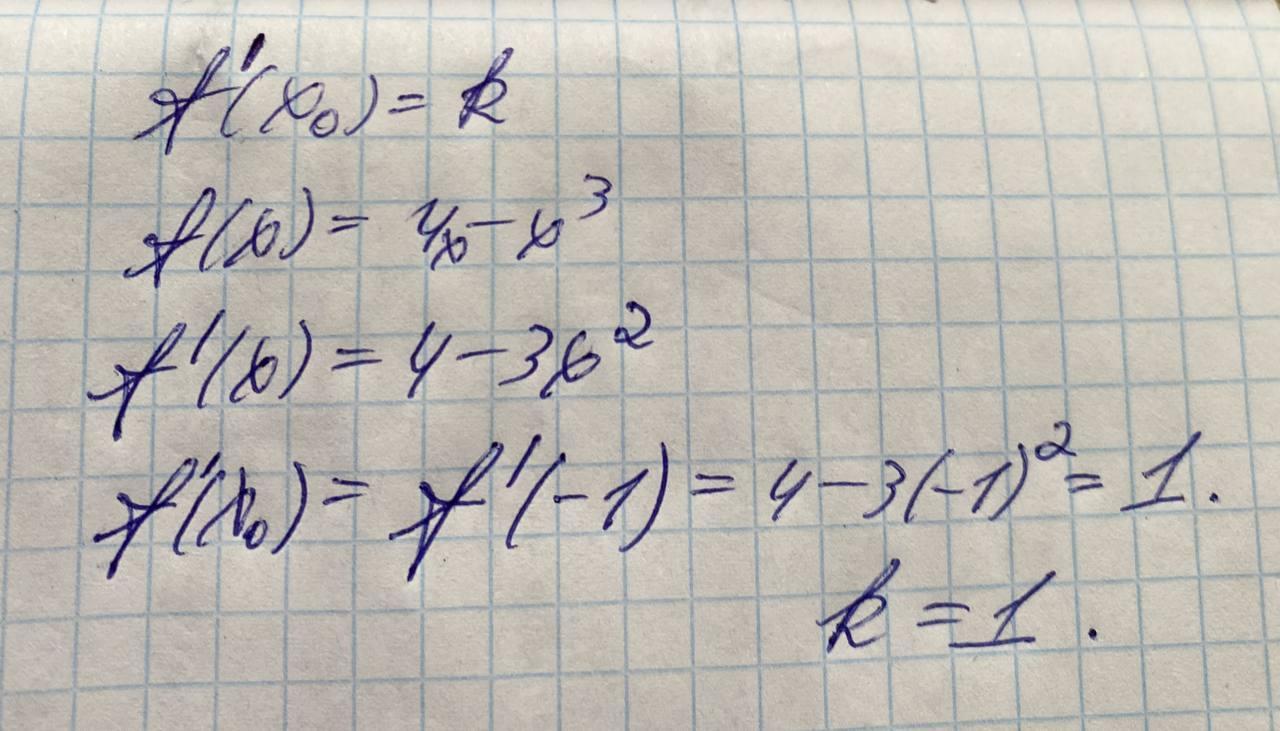 f'(x₀) = k
f(x) = 4x - x³
f'(x) = 4 - 3x²
f'(x₀) = f'(-1) = 4 - 3(-1)² = 1.
k = 1.